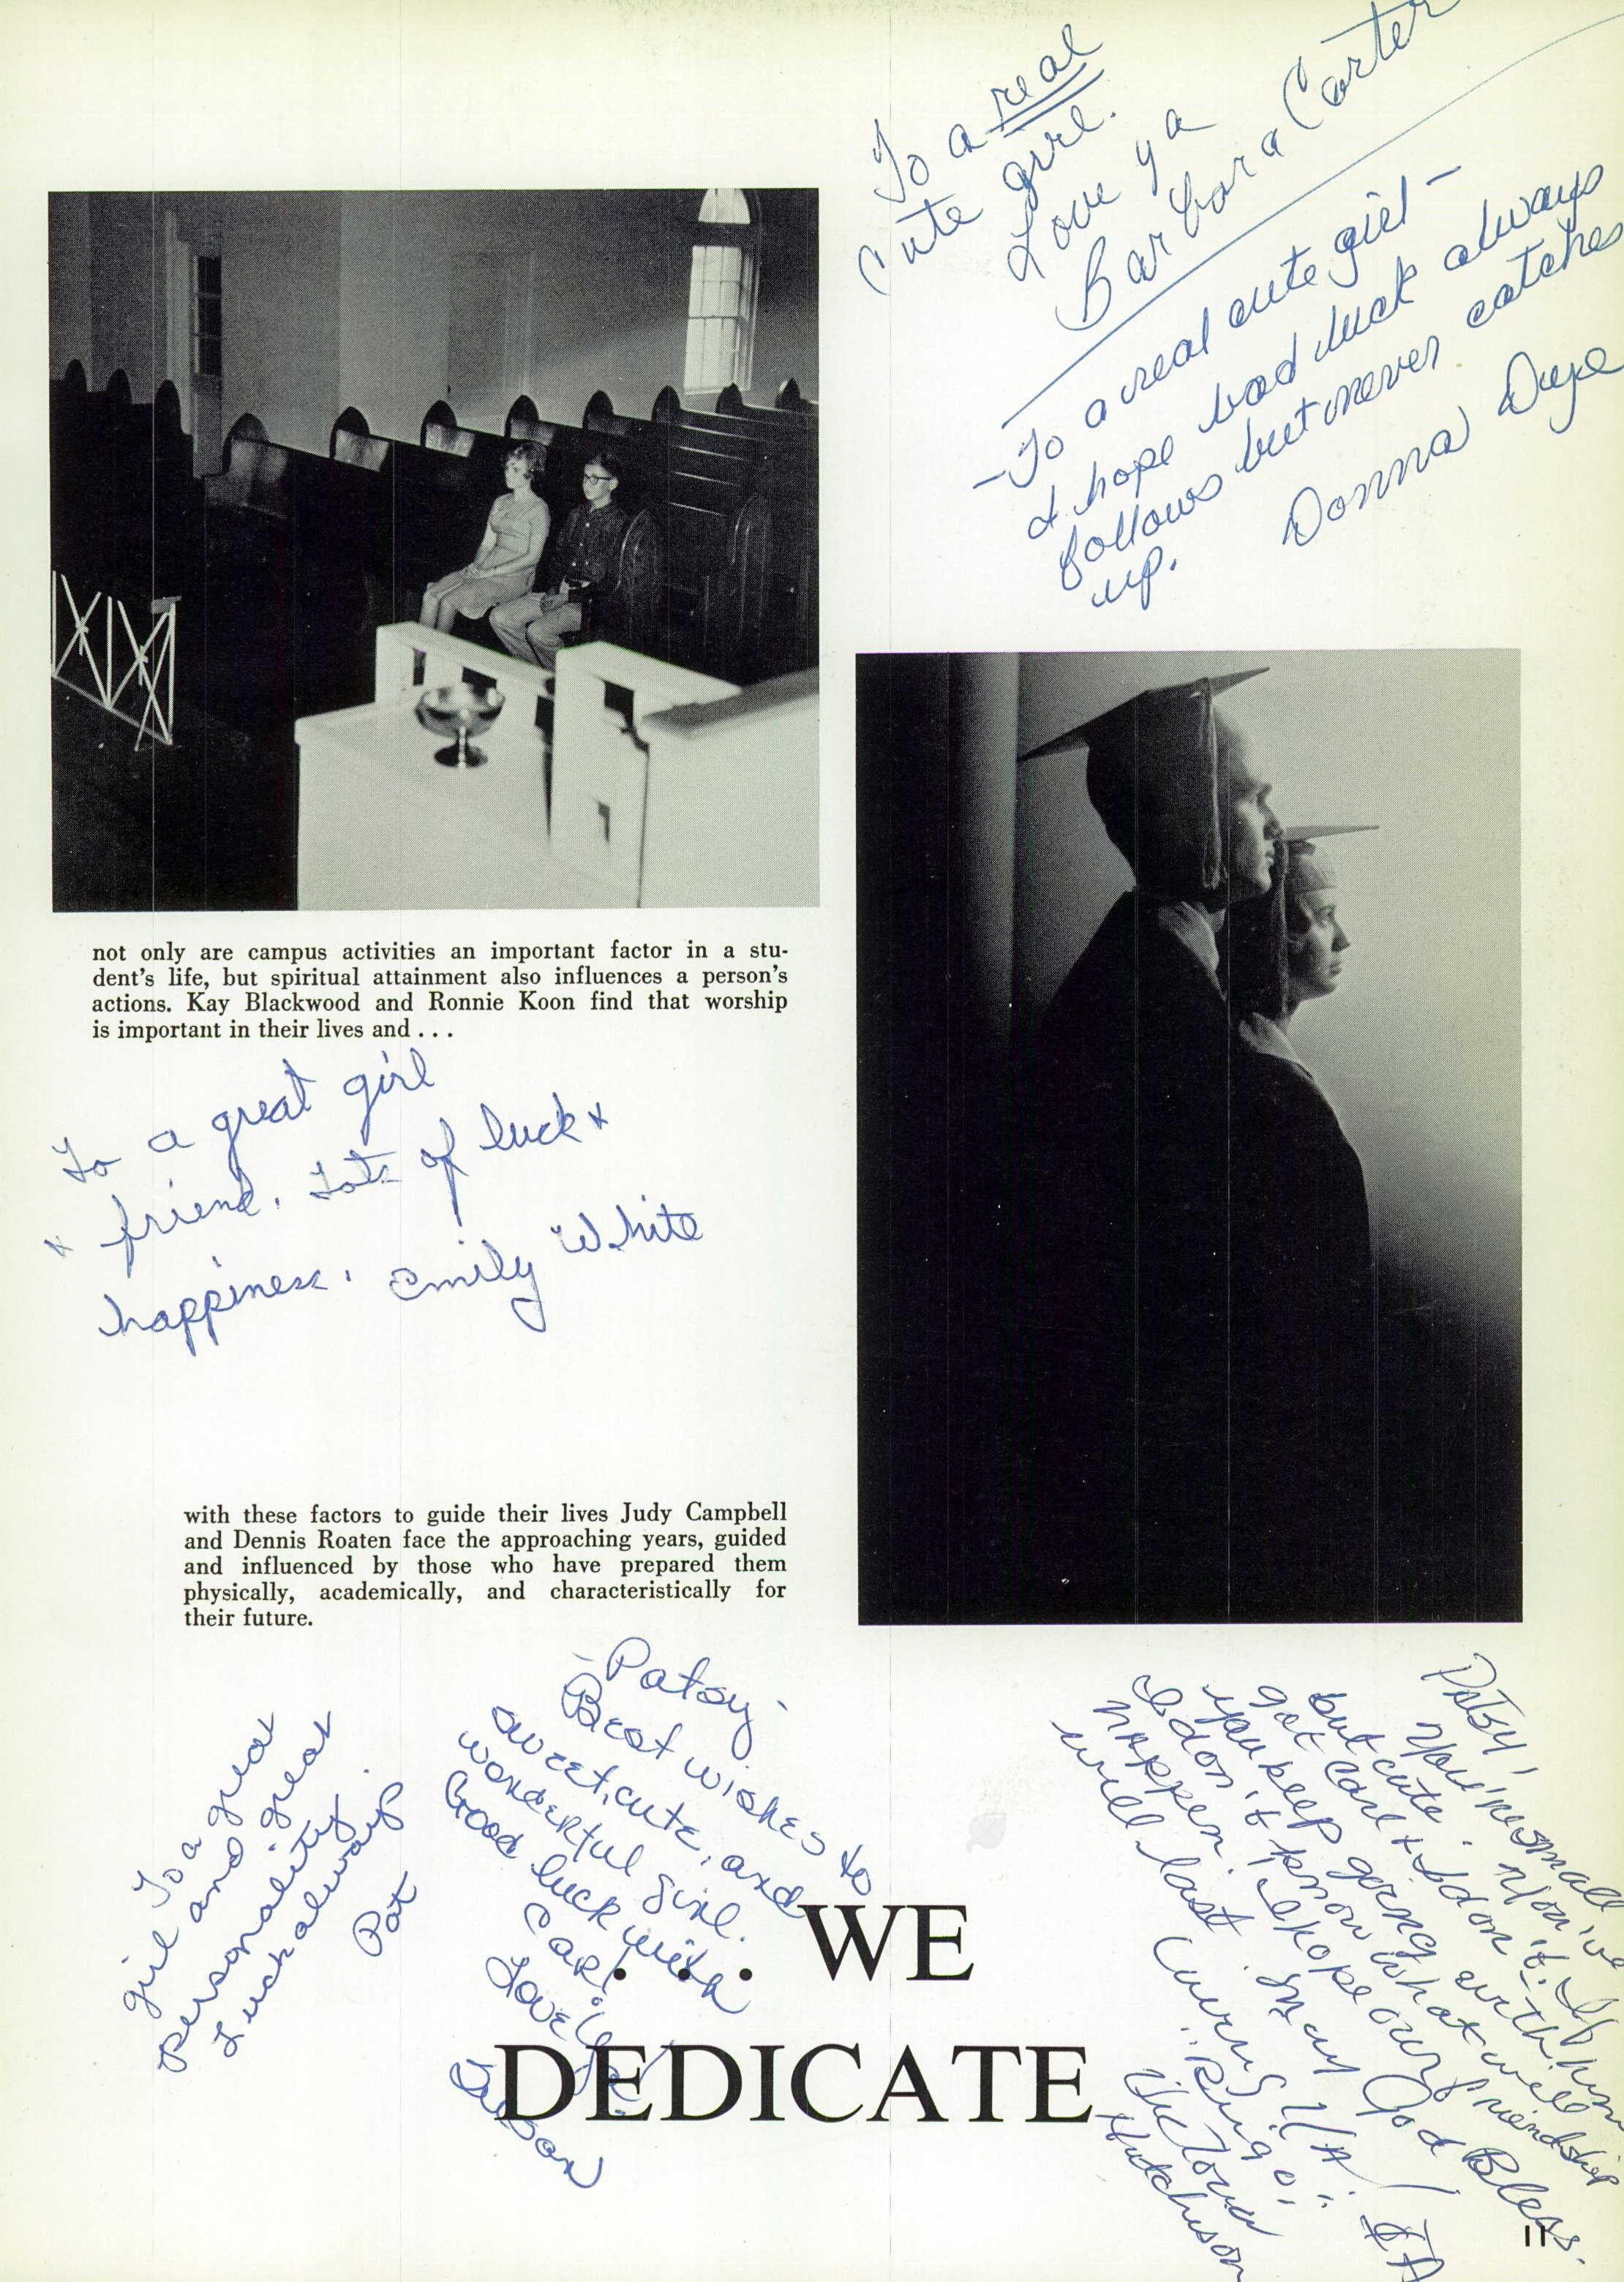 To a real
cute girl.
Love ya
Barbara Carter
- To a real cute girl -
& hope bad luck always
follows but never catches
up.
Donna Dye
not only are campus activities an important factor in a stu-
dent's life, but spiritual attainment also influences a person's
actions. Kay Blackwood and Ronnie Koon find that worship
is important in their lives and . . .
To a great girl
& friend. Lots of luck &
happiness. Emily White
with these factors to guide their lives Judy Campbell
and Dennis Roaten face the approaching years, guided
and influenced by those who have prepared them
physically, academically, and characteristically for
their future.
To a great
girl and great
personality.
Luck always
Pat
- Patsy -
Best wishes to
sweet, cute, and
wonderful girl.
Good luck with
Carl.
Love ya!
Patsy,
You're small
but cute. You've
got Carl & I don't. If
you keep going with him
I don't know what will
happen. I hope our friendship
will last. May God Bless.
"Ringo"
Hutchison
. . . WE
DEDICATE
11